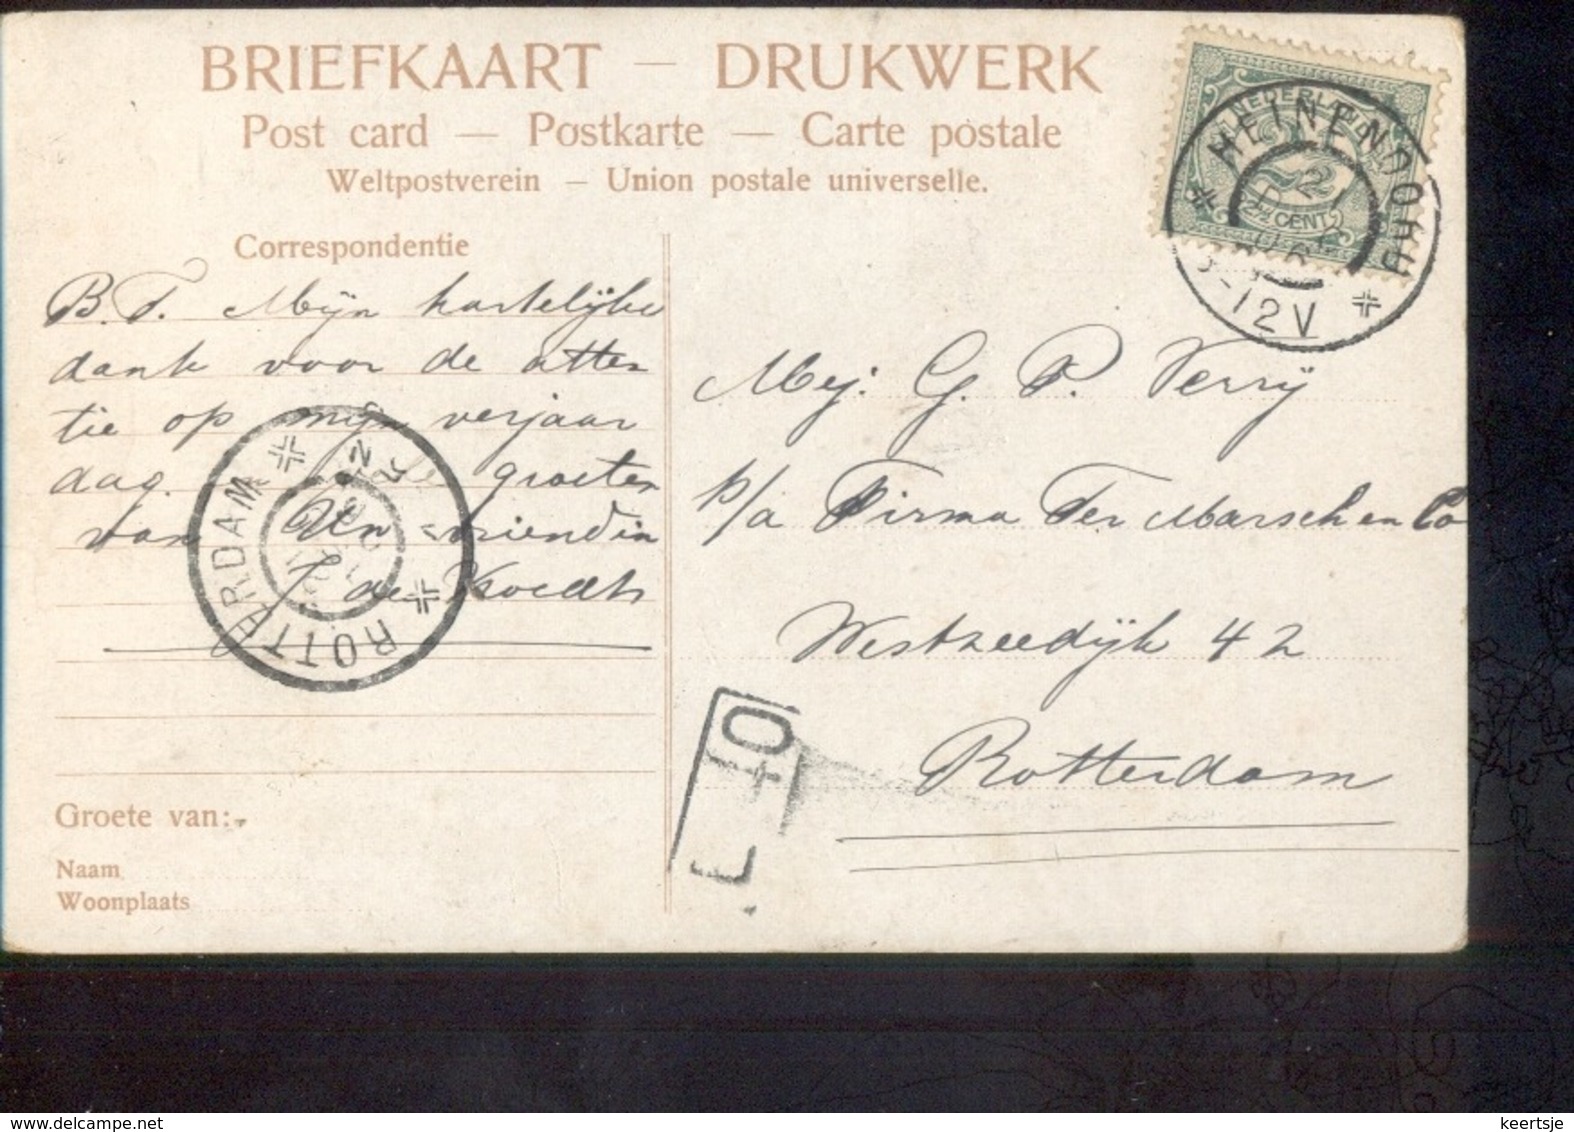 BRIEFKAART — DRUKWERK
Post card — Postkarte — Carte postale
Weltpostverein — Union postale universelle.
NEDERLAND
2½ CENT
HEINENOORD
-12V
Correspondentie
B.F. Mijn hartelijke
dank voor de atten
tie op mijn verjaar
dag. groeten
van Un vriendin
J de
ROTTERDAM
Mej. G. P. Verrij
p/a Firma Ter Marsch en Co
Westzeedijk 42
Rotterdam
Groete van:-
Naam
Woonplaats
keertsje